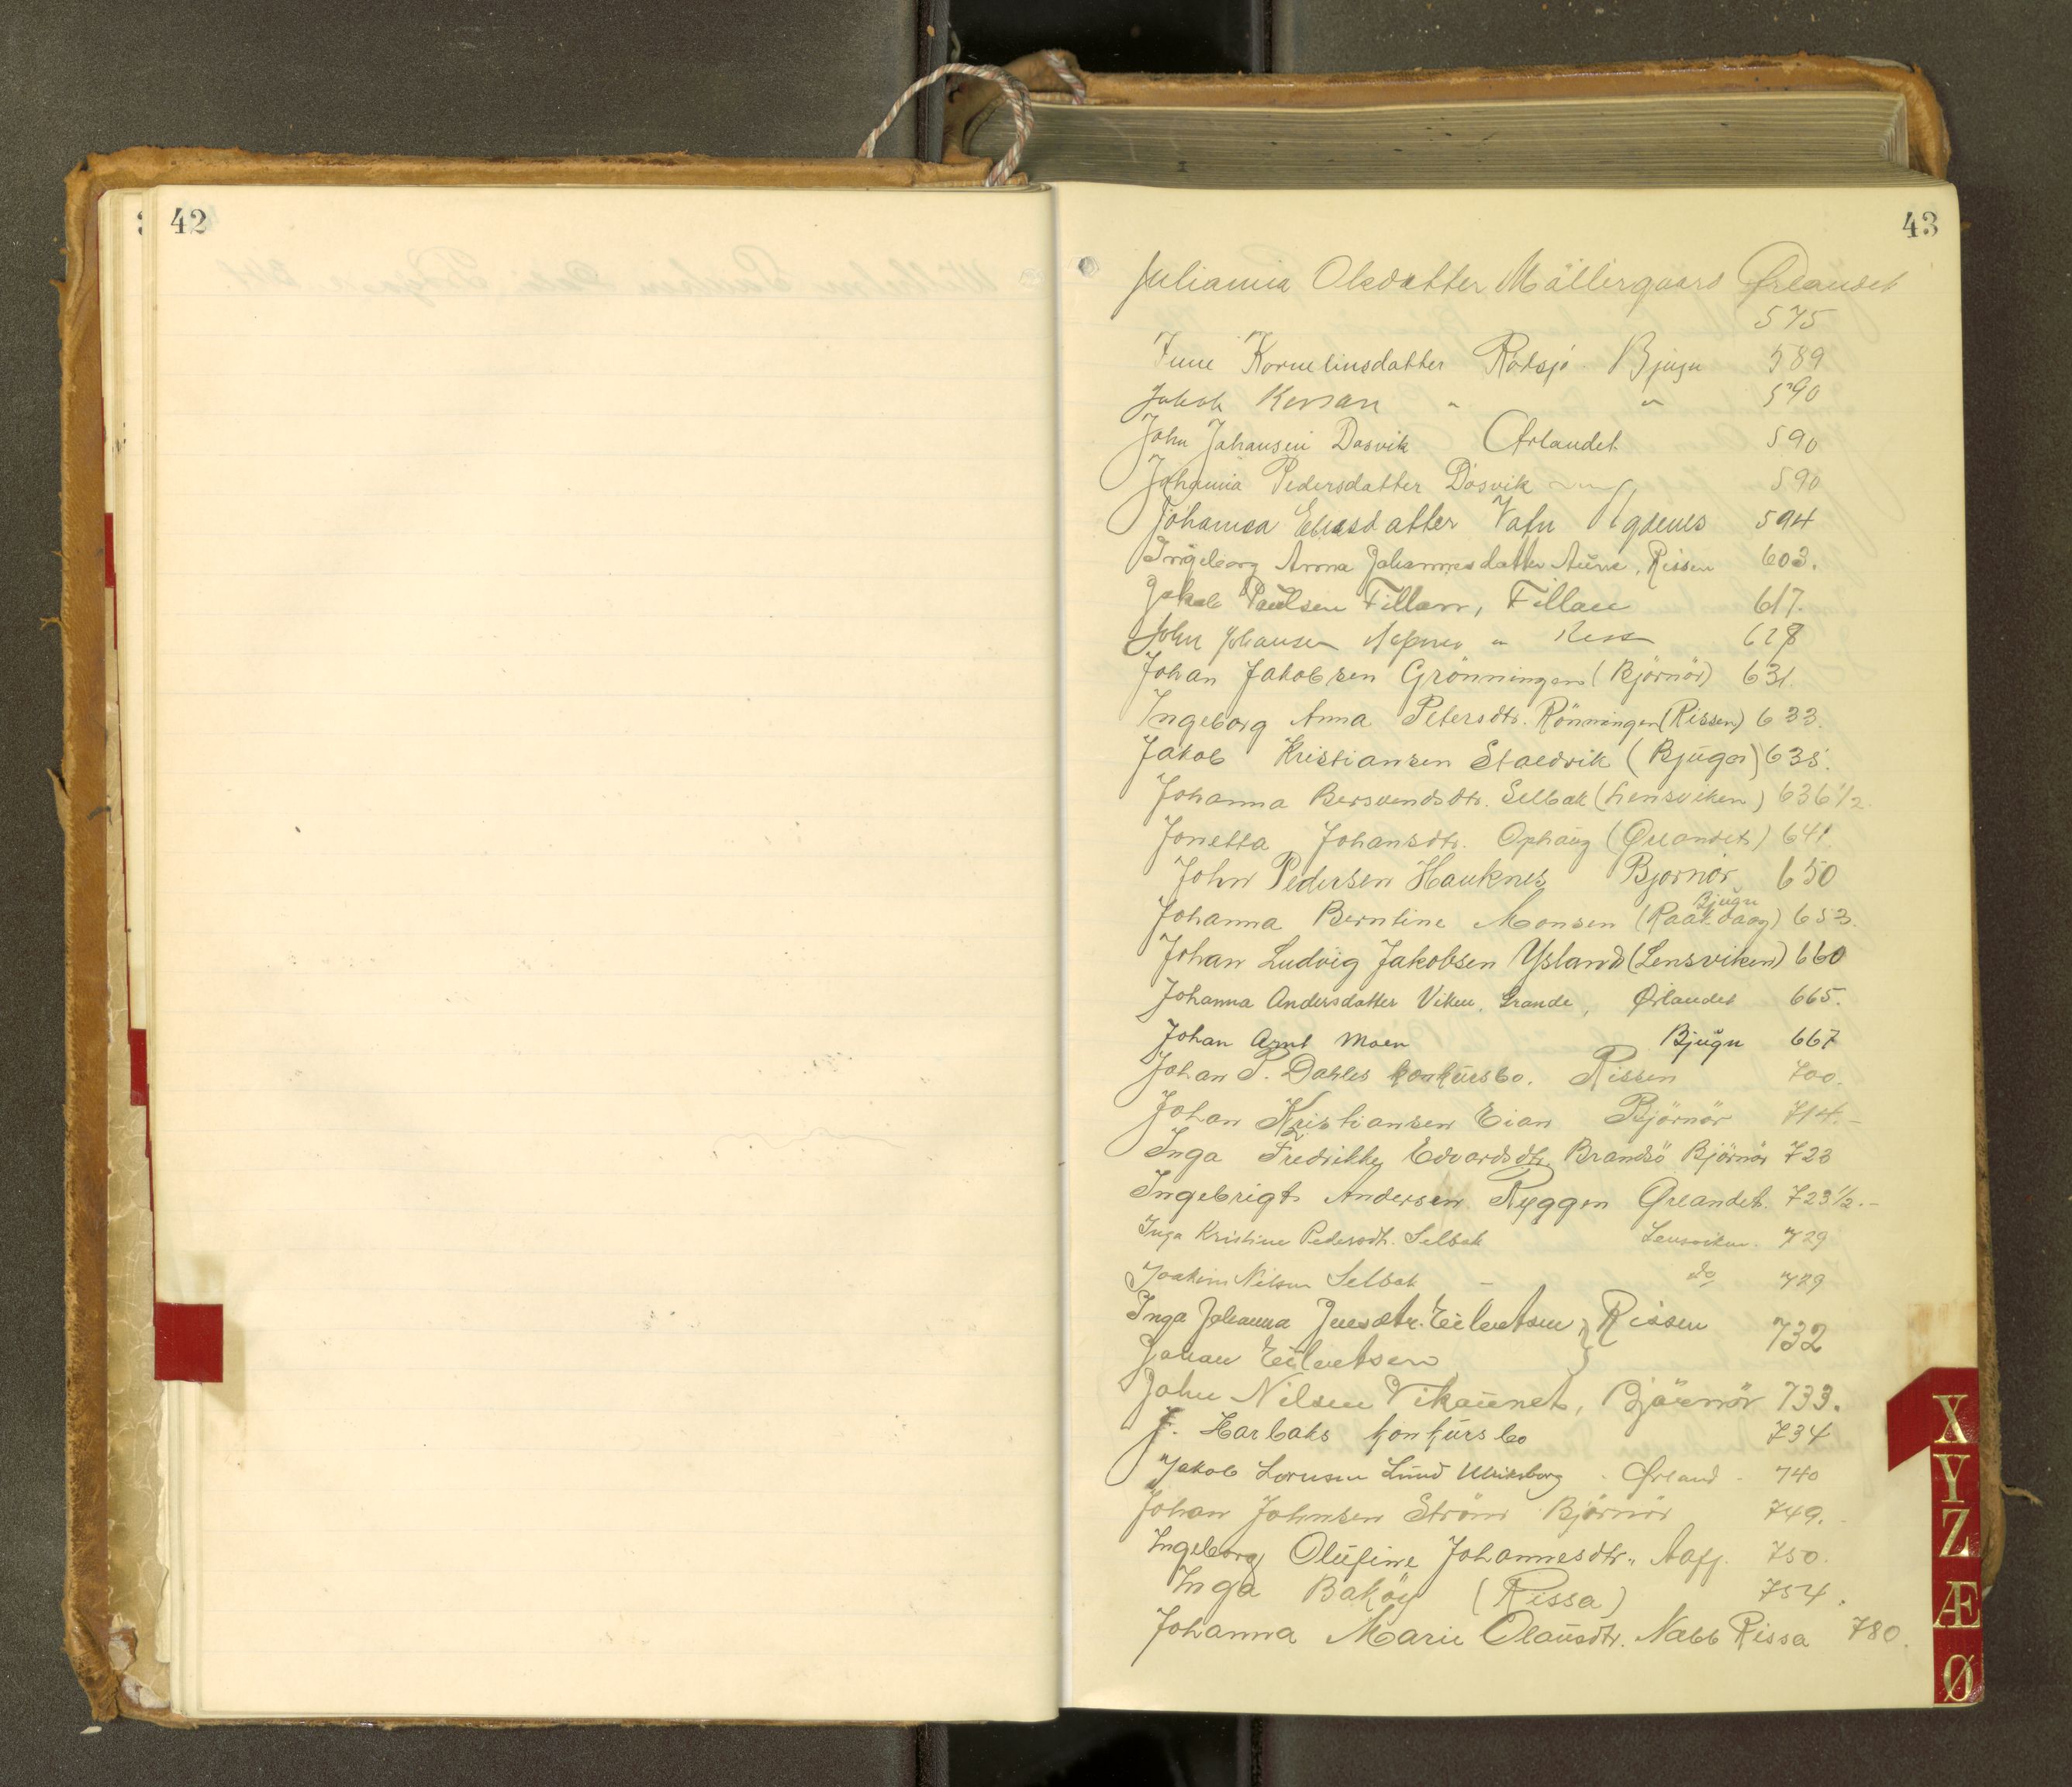 42
43
Juliania Olsdatter Möllergaard Ørlandet
575
Korneliusdatter Rötsjö Bjugn 589
Jakob " " 590
John Johansen Dasvik Ørlandet 590
Johania Pedersdatter Dösvik 590
Johanna Eliasdatter Vatn Agdenes 594
Ingeborg Anna Johannesdatter Aune, Rissen 603.
Jakob Paulsen Fillan, Fillan 617.
John Johansen " 628
Johan Jakobsen Grönningen (Björnör) 631.
Ingeborg Anna Petersdtr. Rönningen (Rissen) 633.
Jakob Kristiansen Staedvik (Bjugn) 635.
Johanna Bersvendsdtr. Selbak (Lensviken) 636 1/2
Jonetta Johansdtr. Ophaug (Ørlandet) 641.
John Pedersen Hauknes Bjornör 650
Bjugn
Johanna Berntine Monsen 653.
Johan Ludvig Jakobsen Ysland (Lensviken) 660
Johanna Andersdatter Viken, Grande, Ørlandet 665.
Johan Arnt Moen Bjugn 667
Johan P. Dahles konkursbo. Rissen 700.
Johan Kristiansen Eian Björnör 714.-
Inga Fredrikke Edvardsdtr. Brandsö Björnör 723
Ingebrigt Andersen Ryggen Ørlandet. 723 1/2.-
Inga Kristine Pedersdtr. Selbak Lensviken. 729
Joakim Nilsen Selbak - do 729
Inga Johanna Jensdtr. Eilertsen } Rissen 732
Johan Eilertsen
John Nilsen Vikaunet, Björnör 733.
J. Harbaks konkursbo 734
Jakob Lornsen Lund Ulriksborg - Ørland - 740
Johan Johnsen Ström Björnör 749.
Ingeborg Olufine Johannesdtr. Aafj. 750.
Inga Baköy (Rissa) 754.
Johanna Marie Olausdtr. Nabb Rissa 780.
X
Y
Z
Æ
Ø